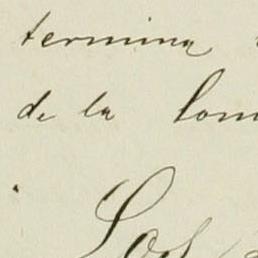 termina
de la lom
Los